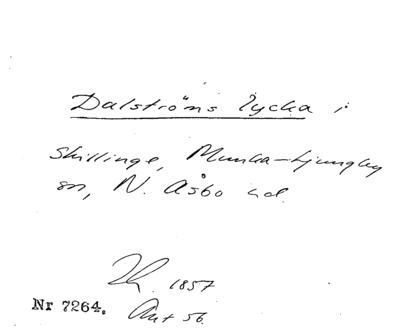 Dalströms lycka i
Skillinge, Munka-Ljungby
sn, N. Åsbo hd.
1857
Nr 7264. Ant 56.